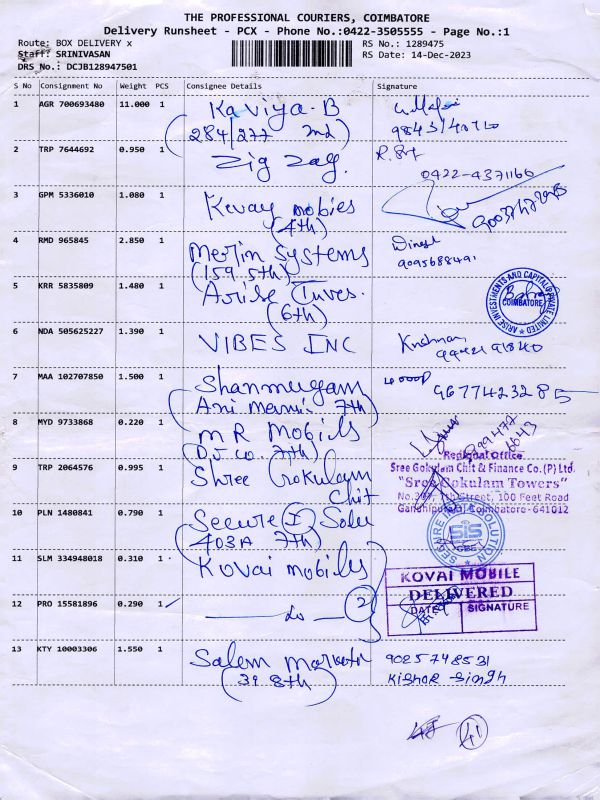 THE PROFESSIONAL COURIERS, COIMBATORE
Delivery Runsheet - PCX - Phone No.:0422-3505555 - Page No.:1
Route: BOX DELIVERY x
RS No.: 1289475
Staff: SRINIVASAN
RS Date: 14-Dec-2023
DRS No.: DCJB128947501
S No Consignment No Weight PCS Consignee Details Signature
1 AGR 700693480 11.000 1 Kaviya-B
(284/277 2nd) 98431 40710
2 TRP 7644692 0.950 1 Zig Zag.
0422-4371166
3 GPM 5336010 1.080 1 Kovay mobies
(4th)
4 RMD 965845 2.850 1 Merlin Systems Dinesh
(159 5th) 9095688491
5 KRR 5835809 1.480 1 Arise Inves.
(6th)
ARISE INVESTMENTS AND CAPITAL PRIVATE LIMITED
COIMBATORE
6 NDA 505625227 1.390 1 VIBES INC Krishnan
99421 91840
7 MAA 102707850 1.500 1 Shanmugam 9677423285
7th)
8 MYD 9733868 0.220 1 MR Mobils
(DJ co. 7th)
9 TRP 2064576 0.995 1 Shree Gokulam
Chit
Regional Office
Sree Gokulam Chit & Finance Co.(P) Ltd.
"Sree Gokulam Towers"
7th Street, 100 Feet Road
Gandhipuram, Coimbatore-641012
10 PLN 1480841 0.790 1 Secure I Solu
(403A 7th)
SIS
CBE
11 SLM 334948018 0.310 1 Kovai mobiles
KOVAI MOBILE
DELIVERED
DATE SIGNATURE
12 PRO 15581896 0.290 1 do 2
13 KTY 10003306 1.550 1 Salem 9025748531
(39 8th) Kishor Singh
41